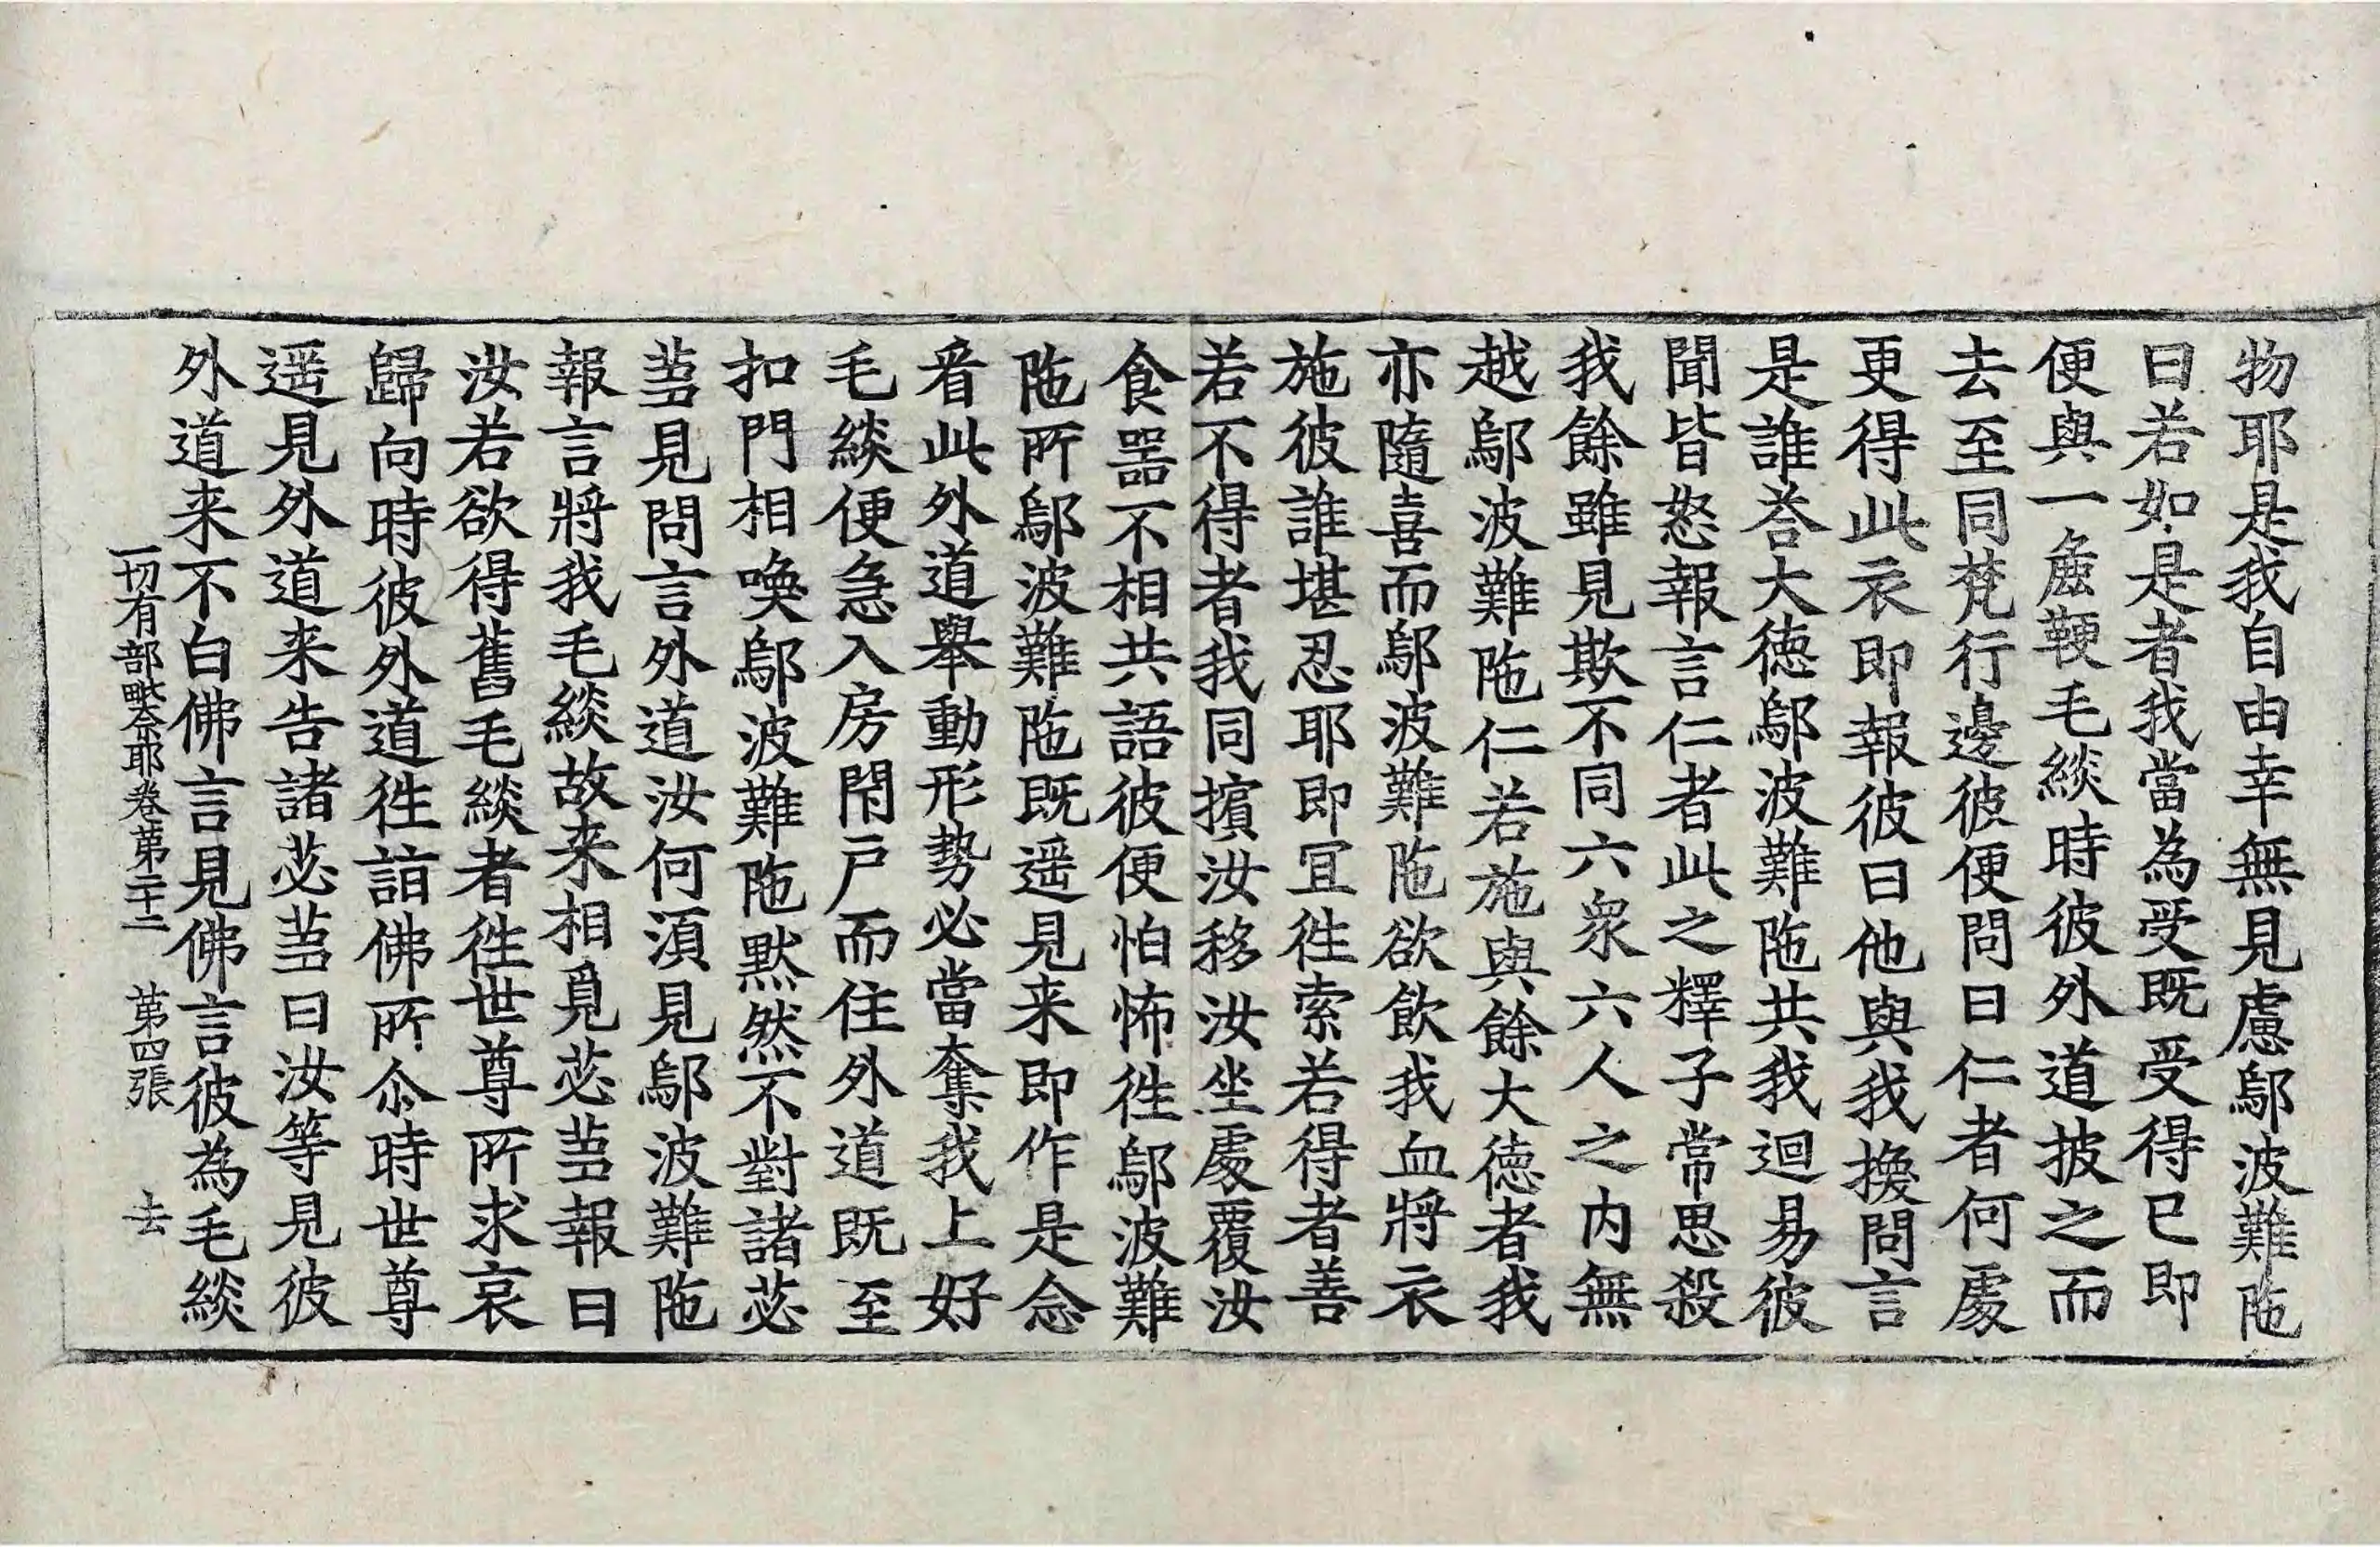 物耶是我自由幸無見慮鄔波難陁
曰若如是者我當為受既受得已即
便與一麁鞕毛緂時彼外道披之而
去至同梵行邊彼便問曰仁者何處
更得此衣即報彼曰他與我換問言
是誰荅大德鄔波難陁共我迴易彼
聞皆怒報言仁者此之釋子常思殺
我餘雖見欺不同六衆六人之内無
越鄔波難陁仁若施與餘大德者我
亦隨喜而鄔波難陁欲飲我血將衣
施彼誰堪忍耶即冝徃索若得者善
若不得者我同擯汝移汝坐處覆汝
食噐不相共語彼便怕怖徃鄔波難
陁所鄔波難陁既遥見来即作是念
看此外道舉動形勢必當奪我上好
毛緂便急入房閇戸而住外道既至
扣門相喚鄔波難陁默然不對諸苾
蒭見問言外道汝何湏見鄔波難陁
報言將我毛緂故来相覓苾蒭報曰
汝若欲得舊毛緂者徃世尊所求哀
歸向時彼外道徃詣佛所尒時世尊
遥見外道来告諸苾蒭曰汝等見彼
外道来不白佛言見佛言彼為毛緂
一切有部毗奈耶卷第二十二 第四張 去